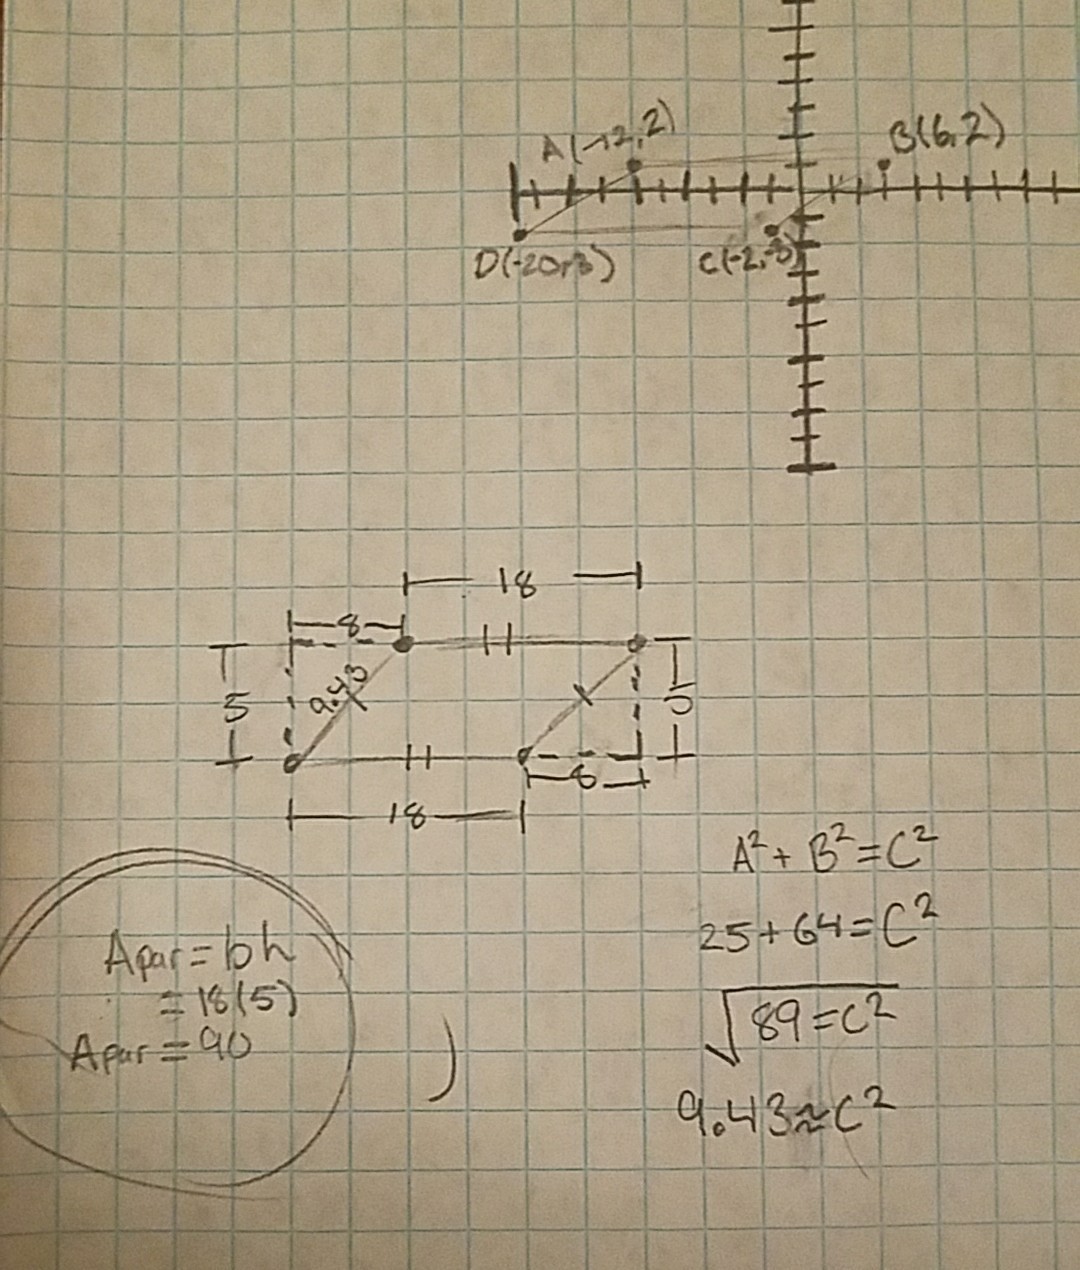 A(-12, 2)
B(6, 2)
D(-20,-3)
C(-2,-3)
18
8
5
9.43
5
8
18
A²+B²=C²
25+64=C²
√89=C²
9.43≈C²
Apar=bh
=18(5)
Apar=90